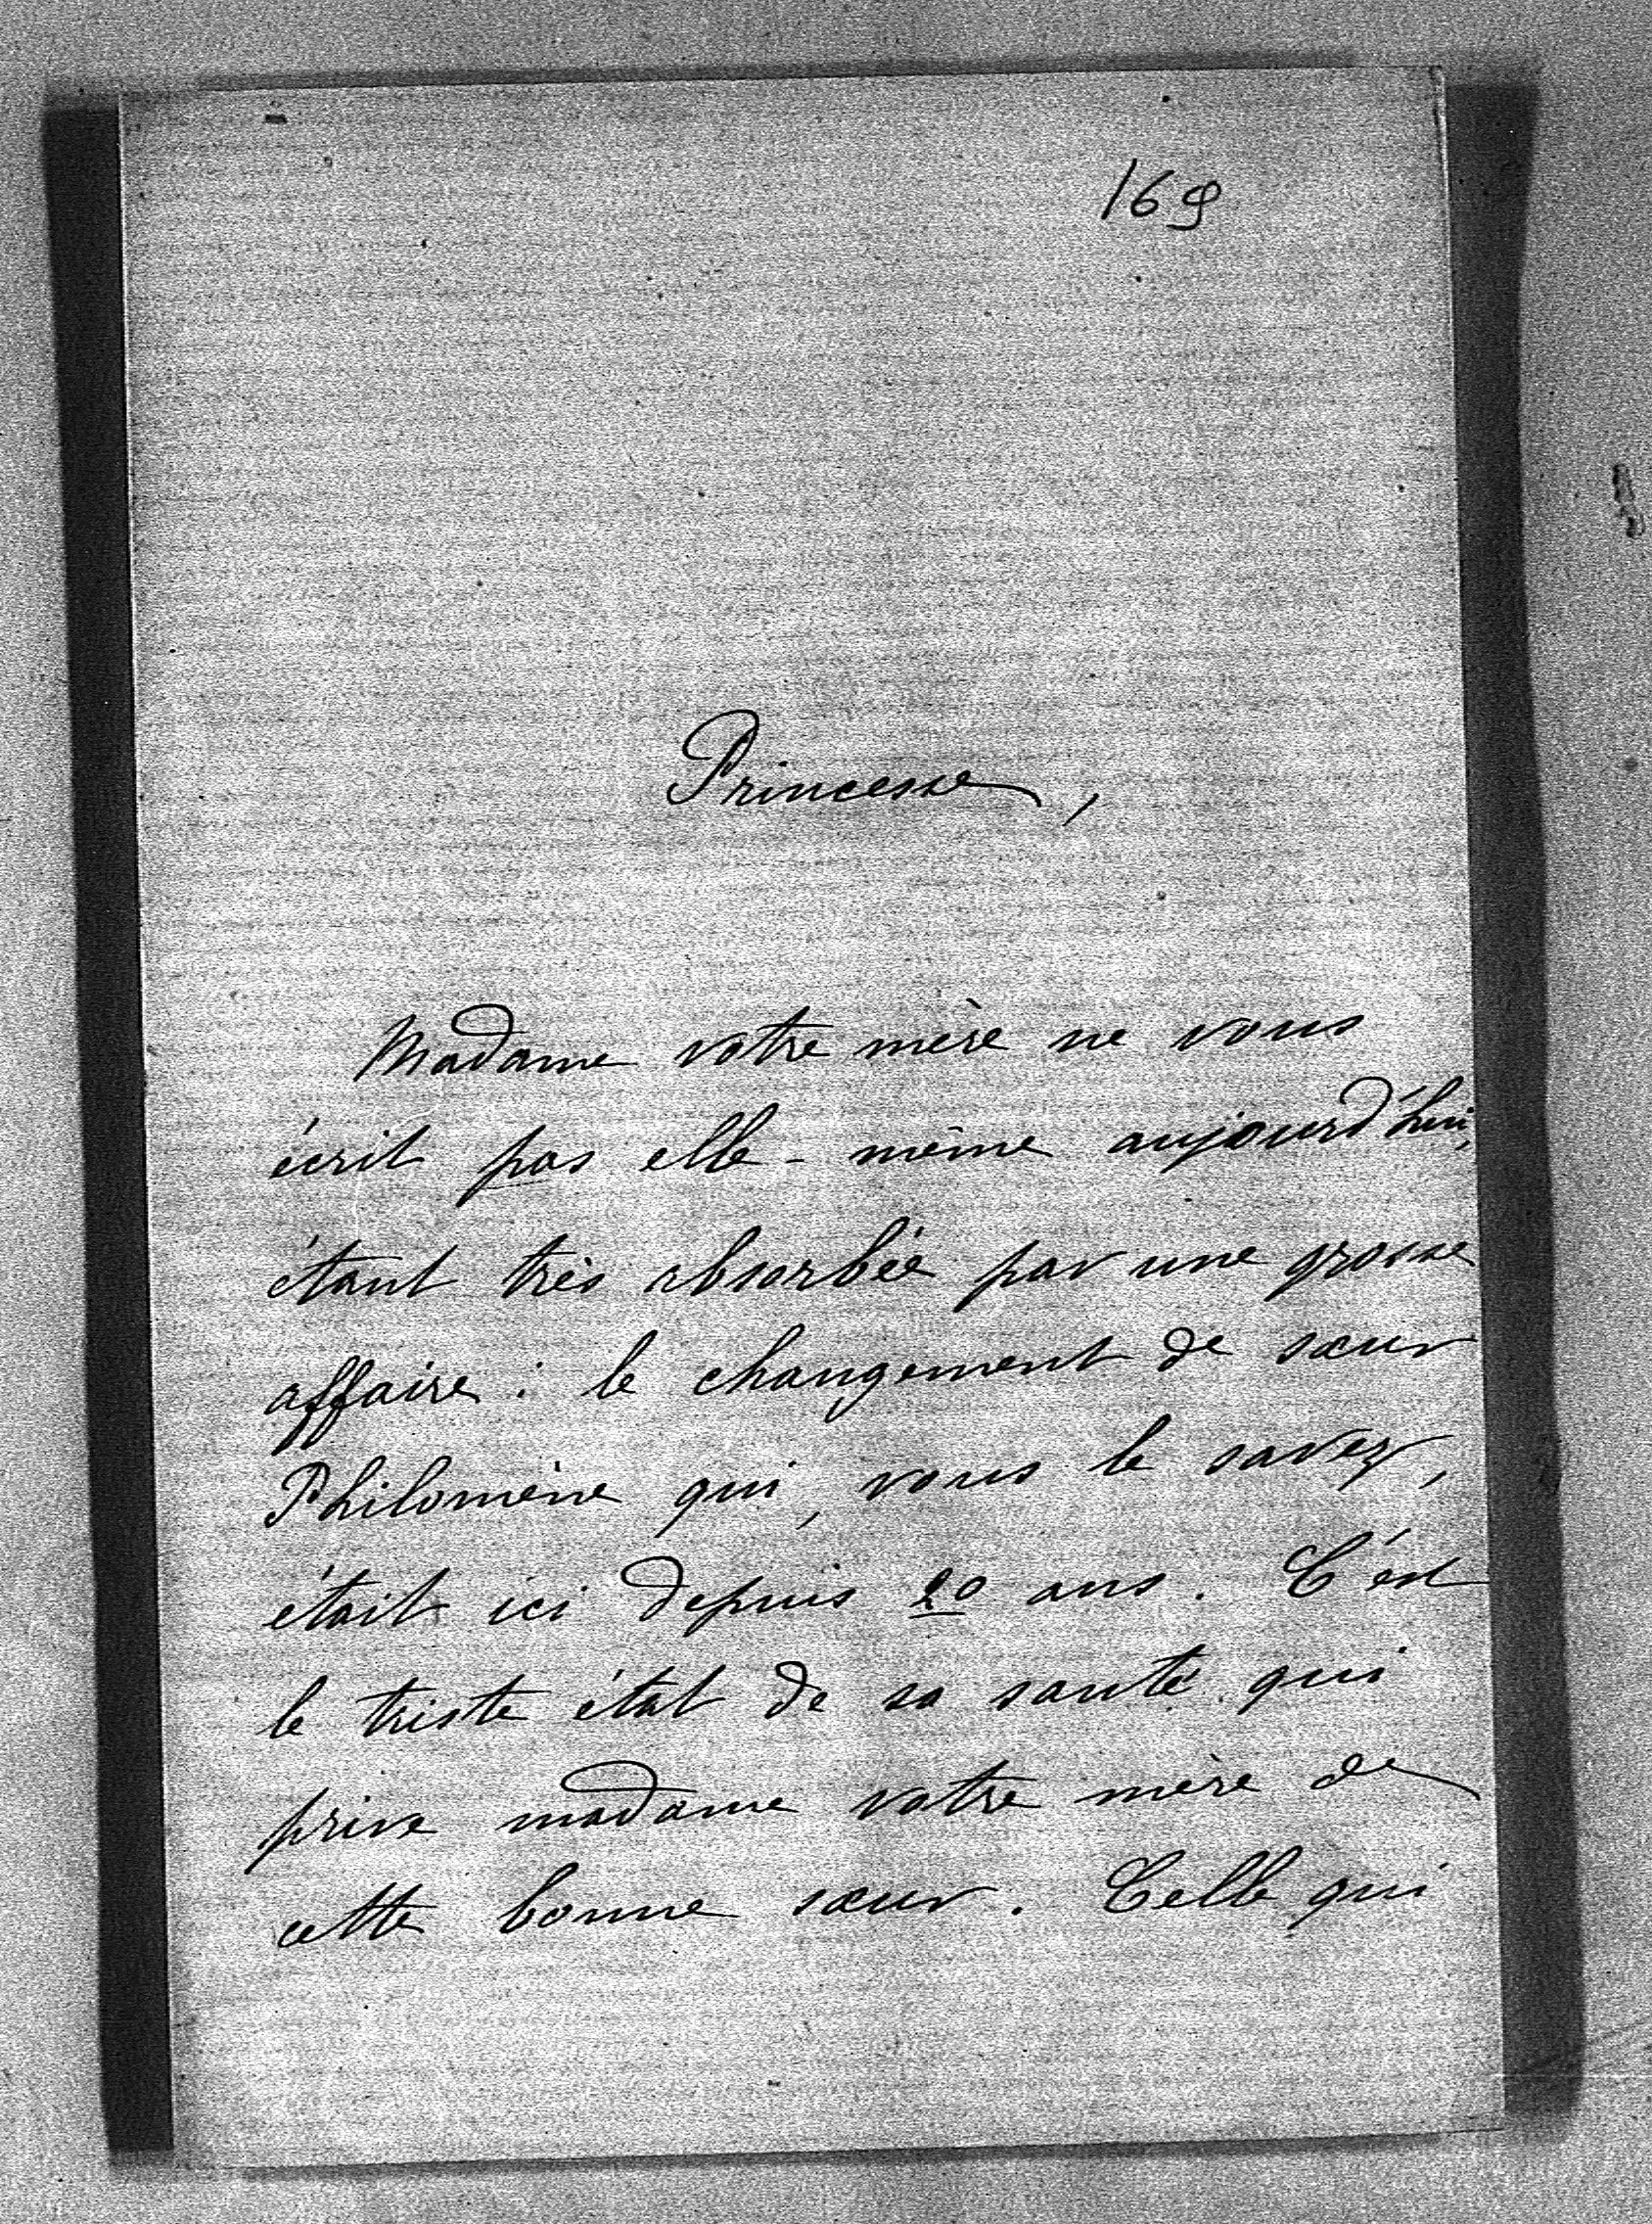 169
Princesse,
Madame votre mère ne vous
écrit pas elle-même aujourd'hui,
étant très absorbée par une grosse
affaire : le changement de sœur
Philomène qui, vous le savez,
était ici depuis 20 ans. C'est
le triste état de sa santé qui
prive madame votre mère de
cette bonne sœur. Celle qui